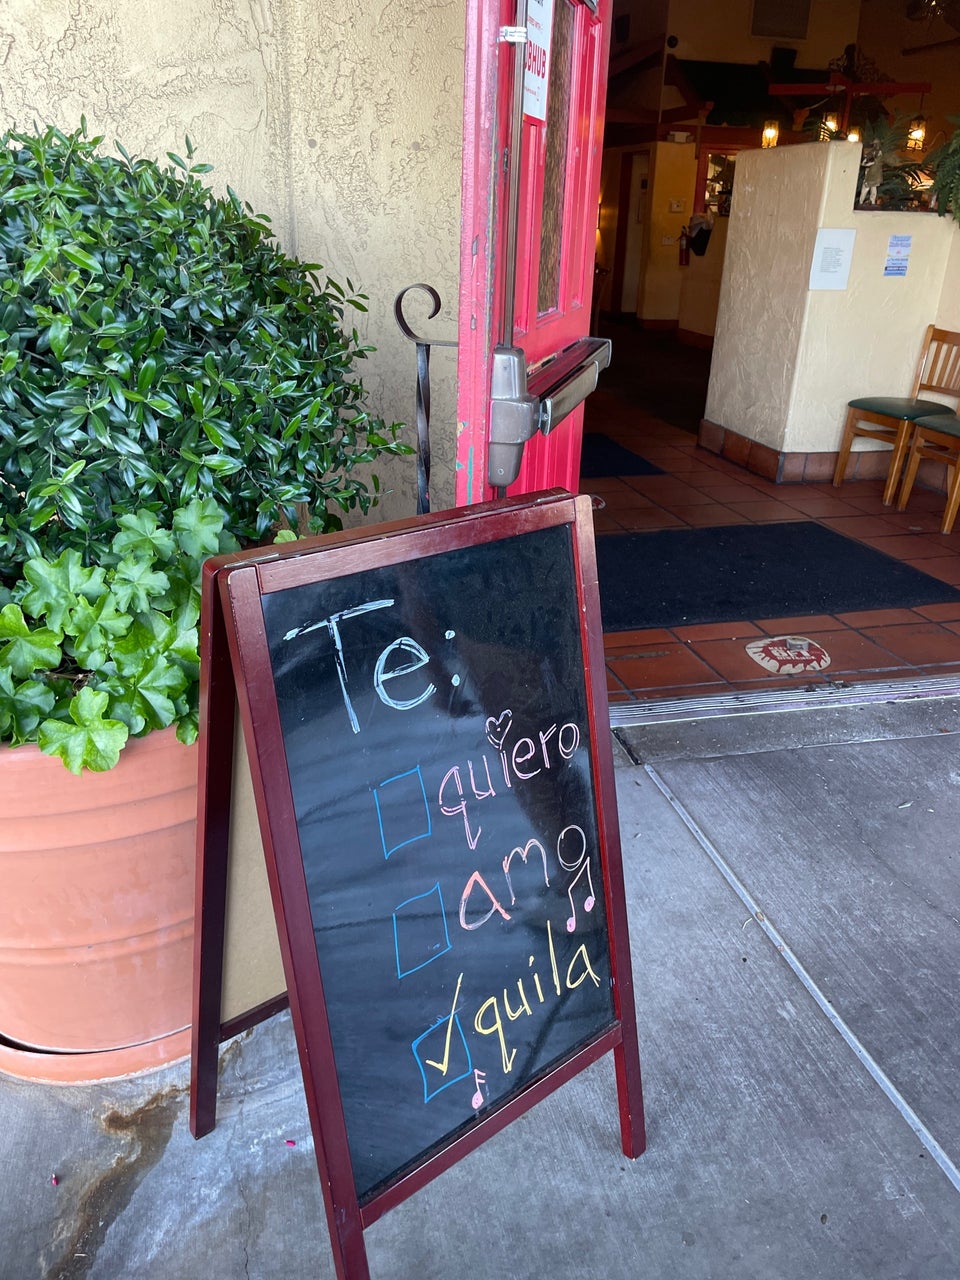 Te:
quiero
amo
quila